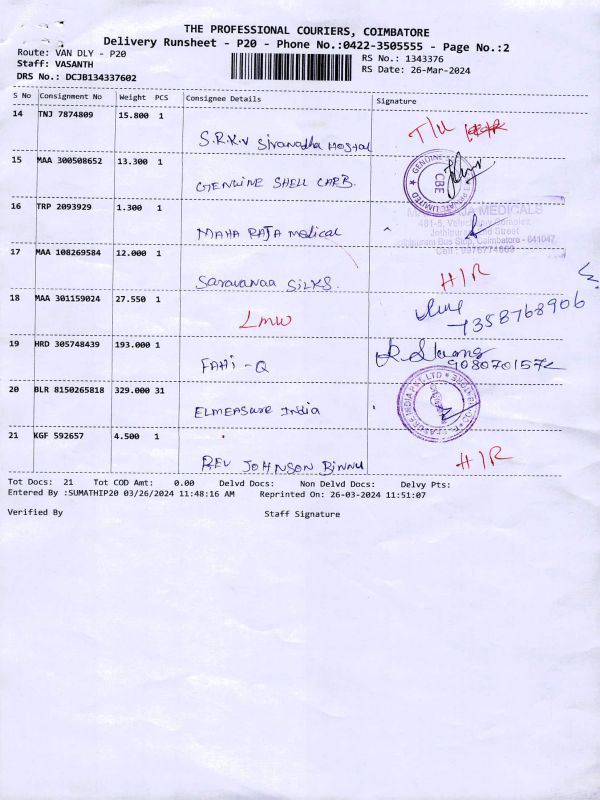 THE PROFESSIONAL COURIERS, COIMBATORE
Delivery Runsheet - P20 - Phone No.:0422-3505555 - Page No.:2
Route: VAN DLY - P20
Staff: VASANTH
DRS No.: DCJB134337602
RS No.: 1343376
RS Date: 26-Mar-2024
S No Consignment No Weight PCS Consignee Details Signature
14 TNJ 7874809 15.800 1 S.R.K.V Sivanadha Hostal T/U
15 MAA 300508652 13.300 1 GENUINE SHELL CARB.
GENUINE PRIVATE LIMITED CBE
16 TRP 2093929 1.300 1 MAHA RAJA medical
MEDICALS
Complex
Street
Bus Stop, Coimbatore - 641047
17 MAA 108269584 12.000 1 Saravanaa SILKS. H/R
18 MAA 301159024 27.550 1 Lmw 7358768906
19 HRD 305748439 193.000 1 FAHI - Q 9080701572
20 BLR 8150265818 329.000 31 ELMEASURE India
INDIA PVT. LTD
21 KGF 592657 4.500 1 REV JOHNSON BINNU H/R
Tot Docs: 21 Tot COD Amt: 0.00 Delvd Docs: Non Delvd Docs: Delvy Pts:
Entered By :SUMATHIP20 03/26/2024 11:48:16 AM Reprinted On: 26-03-2024 11:51:07
Verified By Staff Signature